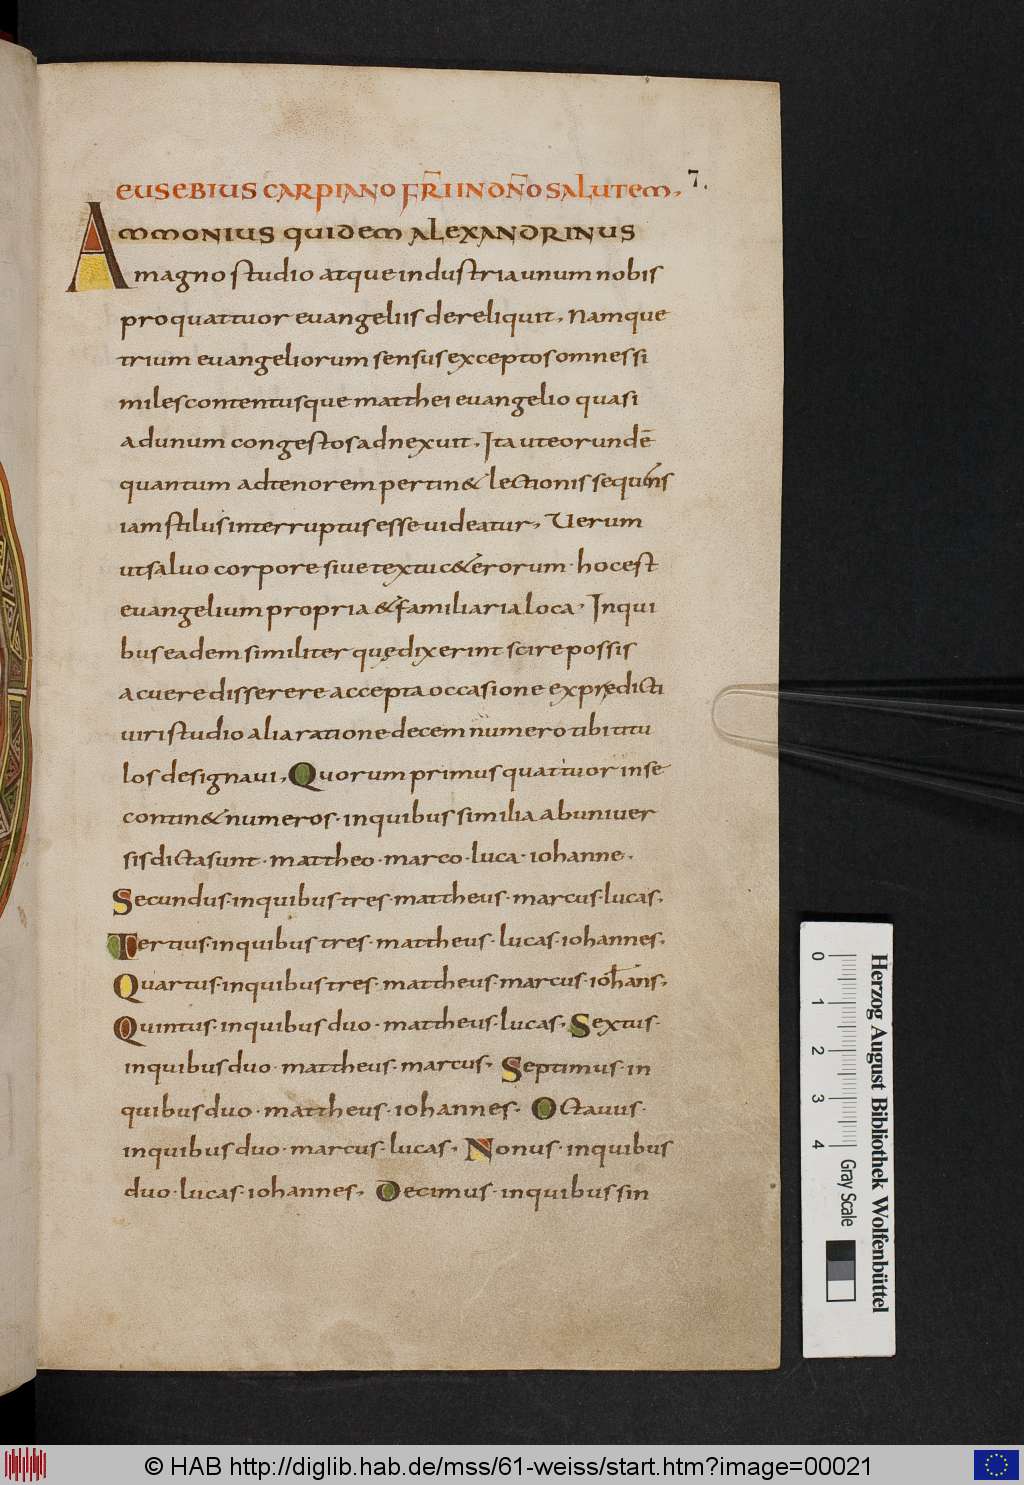 7.
EUSEBIUS CARPIANO FR̄I IN DN̄O SALUTEM,
AMMONIUS QUIDEM ALEXANDRINUS
magno studio atque industria unum nobis
pro quattuor euangeliis dereliquit, Namque
trium euangeliorum sensus exceptos omnes si
miles contentusque matthei euangelio quasi
ad unum congestos adnexuit, Ita ut eorundē
quantum ad tenorem pertin& lectionis sequens
iam stilus interruptus esse uideatur, Uerum
ut saluo corpore siue textu c&erorum· hoc est
euangelium propria & familiaria loca, In qui
bus eadem similiter quę dixerint scire possis
ac uere disserere accepta occasione ex prędicti
uiri studio alia ratione decem numero tibi titu
los designaui, Quorum primus quattuor in se
contin& numeros· in quibus similia ab uniuer
sis dicta sunt· mattheo· marco· luca· iohanne,
Secundus· in quibus tres· mattheus· marcus· lucas,
Tertius· in quibus tres· mattheus· lucas· iohannes,
Quartus· in quibus tres· mattheus· marcus· ioħans,
Quintus· in quibus duo· mattheus· lucas, Sextus·
in quibus duo· mattheus· marcus, Septimus· in
quibus duo· mattheus· iohannes, Octauus·
in quibus duo· marcus· lucas, Nonus· in quibus
duo· lucas· iohannes, Decimus· in quibus sin
0 1 2 3 4
Gray Scale
Herzog August Bibliothek Wolfenbüttel
© HAB http://diglib.hab.de/mss/61-weiss/start.htm?image=00021